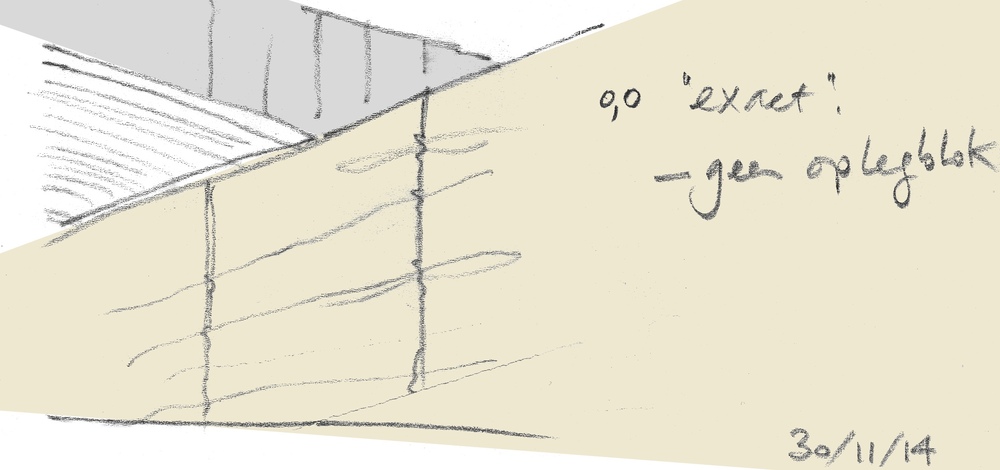 0,0 "exact".
- geen oplegblok
30/11/14